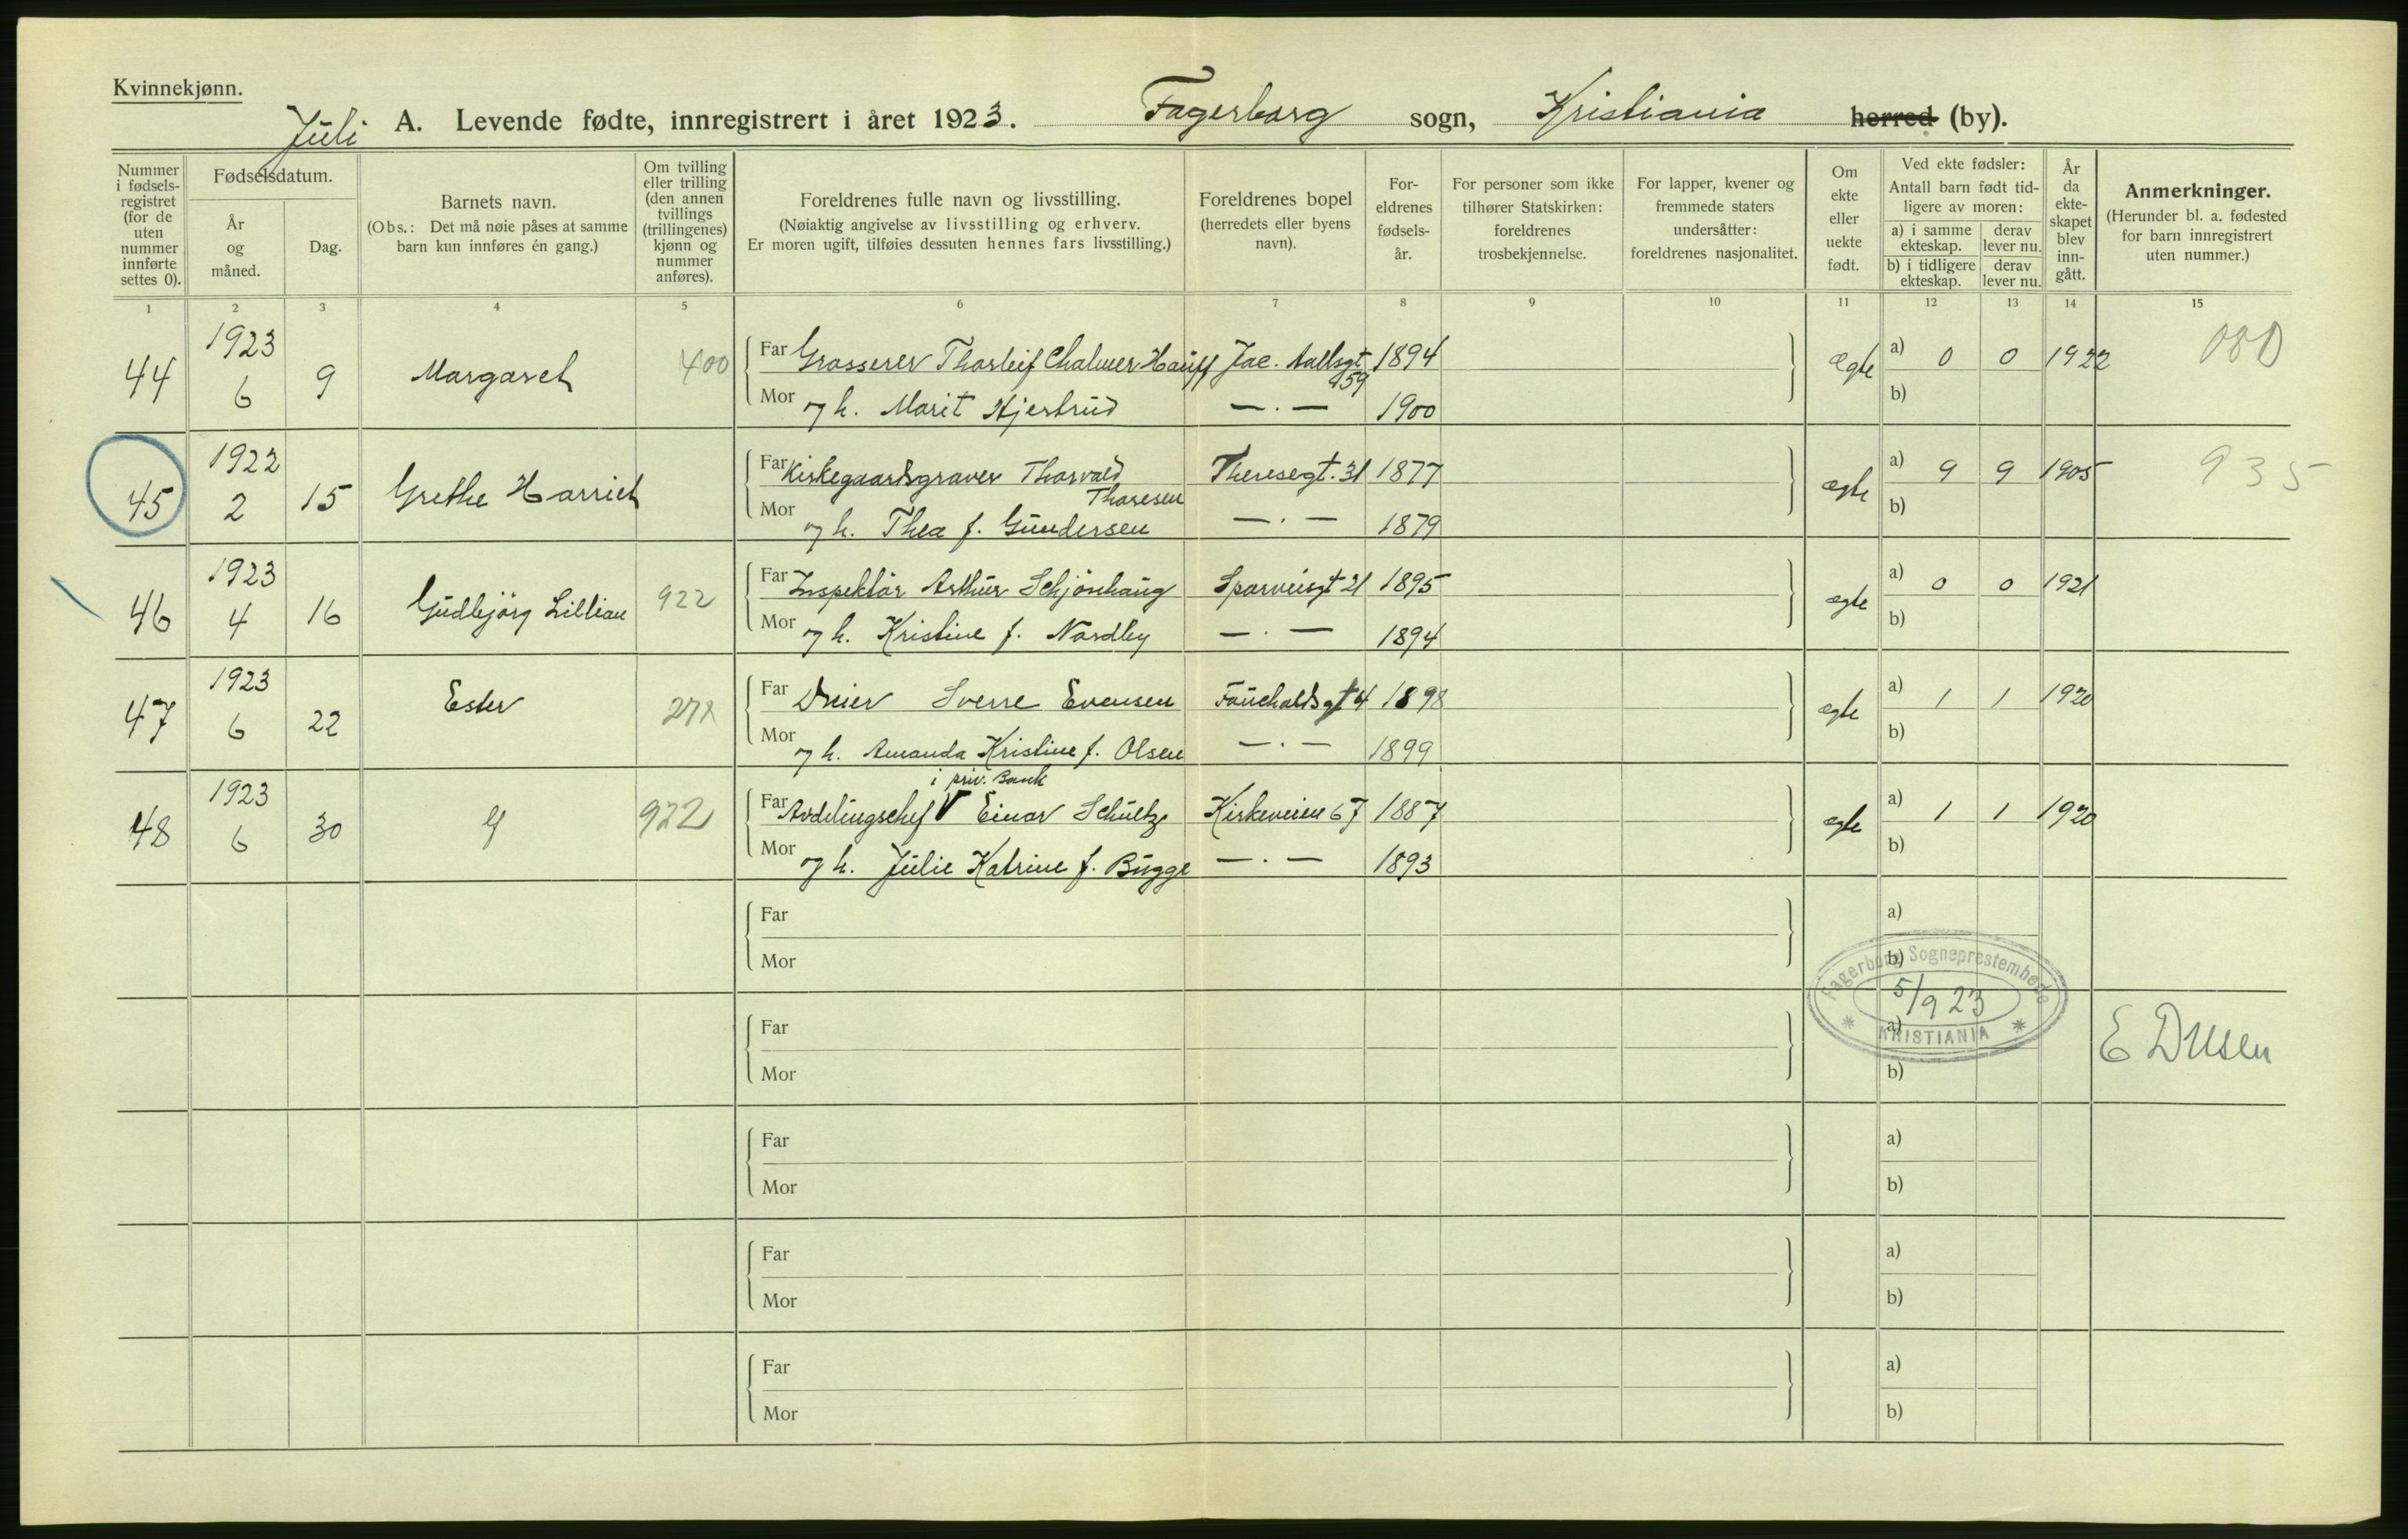 Kvinnekjønn.
Juli A. Levende fødte, innregistrert i året 1923. Fagerborg sogn, Kristiania herred (by).
Nummer i fødsels-registret (for de uten nummer innførte settes 0).
Fødselsdatum.
År og måned.
Dag.
Barnets navn.
(Obs.: Det må nøie påses at samme barn kun innføres én gang.)
Om tvilling eller trilling (den annen tvillings (trillingenes) kjønn og nummer anføres).
Foreldrenes fulle navn og livsstilling.
(Nøiaktig angivelse av livsstilling og erhverv.
Er moren ugift, tilføies dessuten hennes fars livsstilling.)
Foreldrenes bopel
(herredets eller byens navn).
For-eldrenes fødsels-år.
For personer som ikke tilhører Statskirken: foreldrenes trosbekjennelse.
For lapper, kvener og fremmede staters undersåtter: foreldrenes nasjonalitet.
Om ekte eller uekte født.
Ved ekte fødsler:
Antall barn født tid-ligere av moren:
a) i samme ekteskap. derav lever nu.
b) i tidligere ekteskap. derav lever nu.
År da ekte-skapet blev inn-gått.
Anmerkninger.
(Herunder bl. a. fødested for barn innregistrert uten nummer.)
1 2 3 4 5 6 7 8 9 10 11 12 13 14 15
44 1923 6 9 Margaret 400 Far Grosserer Thorleif Chalmer Hauff Jac. Aallsgt 59 1894 Ægte a) 0 0 1922 080
Mor og h. Marit Hjertrud —.— 1900 b)
45 1922 2 15 Grethe Harriet Far Kirkegaardsgraver Thorvald Thoresen Theresegt. 31 1877 ægte a) 9 9 1905 935
Mor og h. Thea f. Gundersen —.— 1879 b)
46 1923 4 16 Gudbjörg Lillian 922 Far Inspektör Arthur Schjönhaug Sporveisgt 21 1895 ægte a) 0 0 1921
Mor og h. Kristine f. Nordby —.— 1894 b)
47 1923 6 22 Ester Far Dreier Sverre Evensen Fauchaldsgt 4 1898 ægte a) 1 1 1920
Mor og h. Amanda Kristine f. Olsen —.— 1899 b)
i priv. Bank
48 1923 6 30 922 Far Avdelingschef V Einar Schultze Kirkeveien 67 1887 ægte a) 1 1 1920
Mor og h. Julie Katrine f. Bugge —.— 1893 b)
Far a)
Mor b)
Fagerborg Sogneprestembede
5/9 23
KRISTIANIA
Far a)
Mor b)
Far a)
Mor b)
Far a)
Mor b)
Far a)
Mor b)